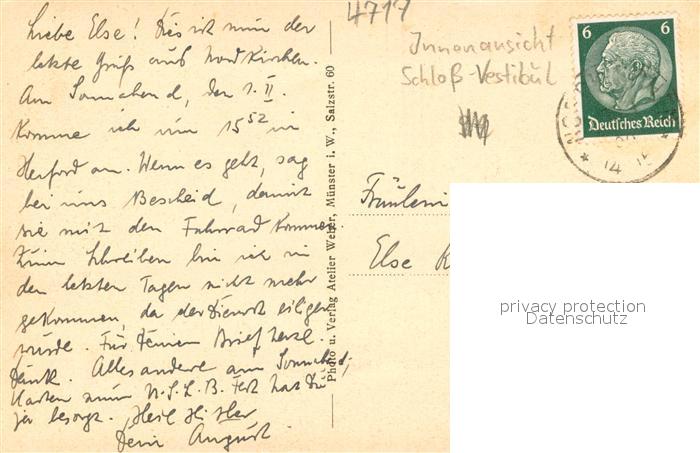 Liebe Else! Dies ist nun der
letzte Gruß aus Nordkirchen.
Am Sonnabend, den 1. II.
komme ich um 15 52 in
Herford an. Wenn es geht, sag
bei uns Bescheid, damit
sie mit dem Fahrrad kommen.
Zum Schreiben bin ich in
den letzten Tagen nicht mehr
gekommen, da der Dienst eiliger
wurde. Für Deinen Brief herzl.
Dank. Alles andere am Sonnabend,
Karten zum N.S.L.B. Fest hast Du
ja besorgt. Heil Hitler
Dein August.
Photo u. Verlag Atelier Weber, Münster i. W., Salzstr. 60
4717
Innenansicht
Schloß-Vestibül
6 6
Deutsches Reich
14
Fräulein
Else K
privacy protection
Datenschutz